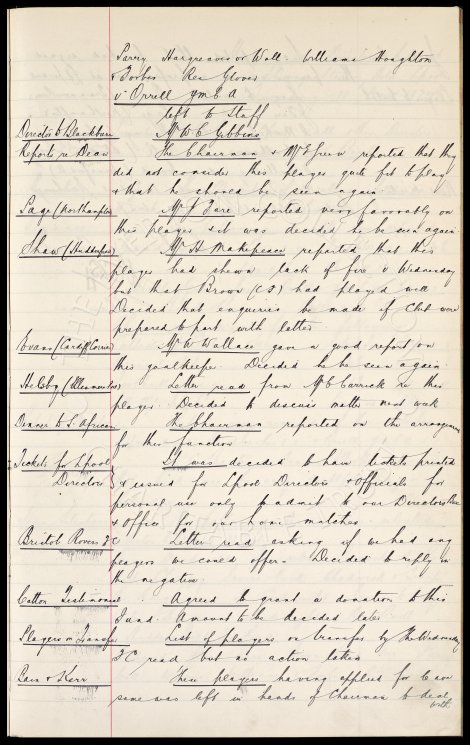 Parry Hargreaves or Wall. Williams Houghton
& Forbes Res Glover
v Orrell YMCA
left to Staff
Director to Blackburn Mr W C Gibbins
Reports re Dean The Chairman & Mr Green reported that they
did not consider this players quite fit to play
& that he should be seen again
Page (Northampton Mr J Fare reported very favorably on
this player & it was decided he be seen again
Shaw (Huddersfield) Mr H Makepeace reported that this
player had shewn lack of fire v Wednesday
but that Brown (CF) had played well
Decided that enquiries be made if Club were
prepared to part with latter
Evans (Cardiff Corries) Mr W Wallace gave a good report on
this goalkeeper. Decided he be seen again
Helsby ( Letter read from Mr E Carrick re this
player. Decided to discuss matter next week
Dinner to S. African The Chairman reported on the arrangements
for this function
Tickets for Lpool It was decided to have tickets printed
Directors & issued for Lpool Directors & Officials for
personal use only to admit to our Directors Box
& Office for our home matches
Bristol Rovers FC Letter read asking if we had any
players we could offer. Decided to reply in
the negative.
Cotton Testimonial Agreed to grant a donation to this
Fund. Amount to be decided later
Players on Transfer List of players on transfer by The Wednesday
FC read but no action taken
Bain & Kerr These players having applied for
same was left in hands of Chairman to deal
with